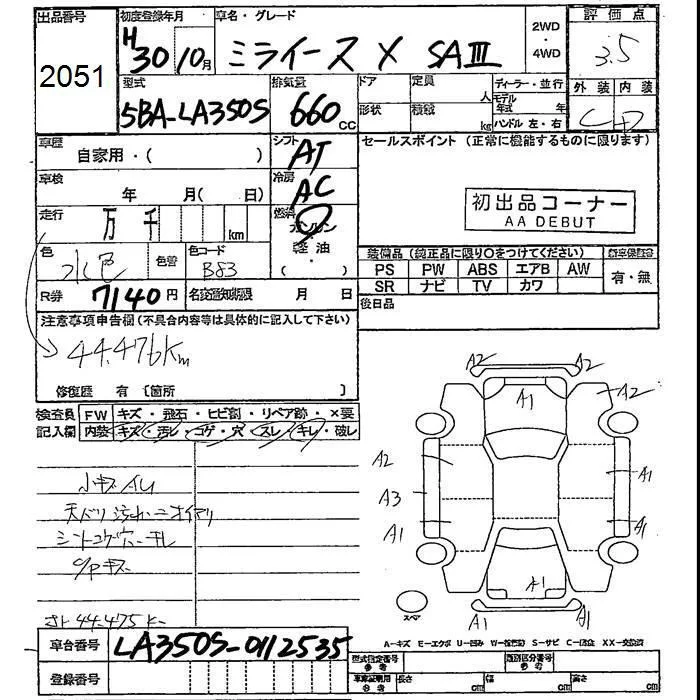 出品番号 初度登録年月 車名・グレード 2WD・4WD 評価点
2051 H30/10月 ミライース X SAⅢ 3.5
型式 排気量 ドア 定員 人 ディーラー・並行 外装 内装
5BA-LA350S 660cc 形状 積載 kg モデル年式 年 ハンドル 左・右 C D
車歴 自家用・( ) シフト AT セールスポイント (正常に機能するものに限ります)
車検 年 月( 日) 冷房 AC
初出品コーナー
AA DEBUT
走行 万 千 km 燃料 ガソリン・軽油・( )
色 水色 色替 色コード B83 装備品(純正品に限り○をつけてください) 新車保証書
PS PW ABS エアB AW 有・無
SR ナビ TV カワ
R券 7140円 名変通知期限 月 日 後日品
注意事項申告欄(不具合内容等は具体的に記入して下さい)
44,476km
修復歴 有 〔箇所 〕
検査員 FW キズ・飛石・ヒビ割・リペア跡・×要
記入欄 内装 キズ・汚レ・コゲ・穴・スレ・キレ・破レ
小キズ イレ
天バリ 汚れ ニオイアリ
シートコゲ穴 キレ
O/Pキズ
44,475k
A2 A2
A1 A2
A2 A1
A3
A1 A1
A1
A1 A1
スペア
A-キズ E-エクボ U-凹み W-補修跡 S-サビ C-腐食 XX-交換済
車台番号 LA350S-0112535 型式指定番号 参考 類別区分番号 参考
登録番号 車庫証明用 参考 長さ cm 幅 cm 高さ cm